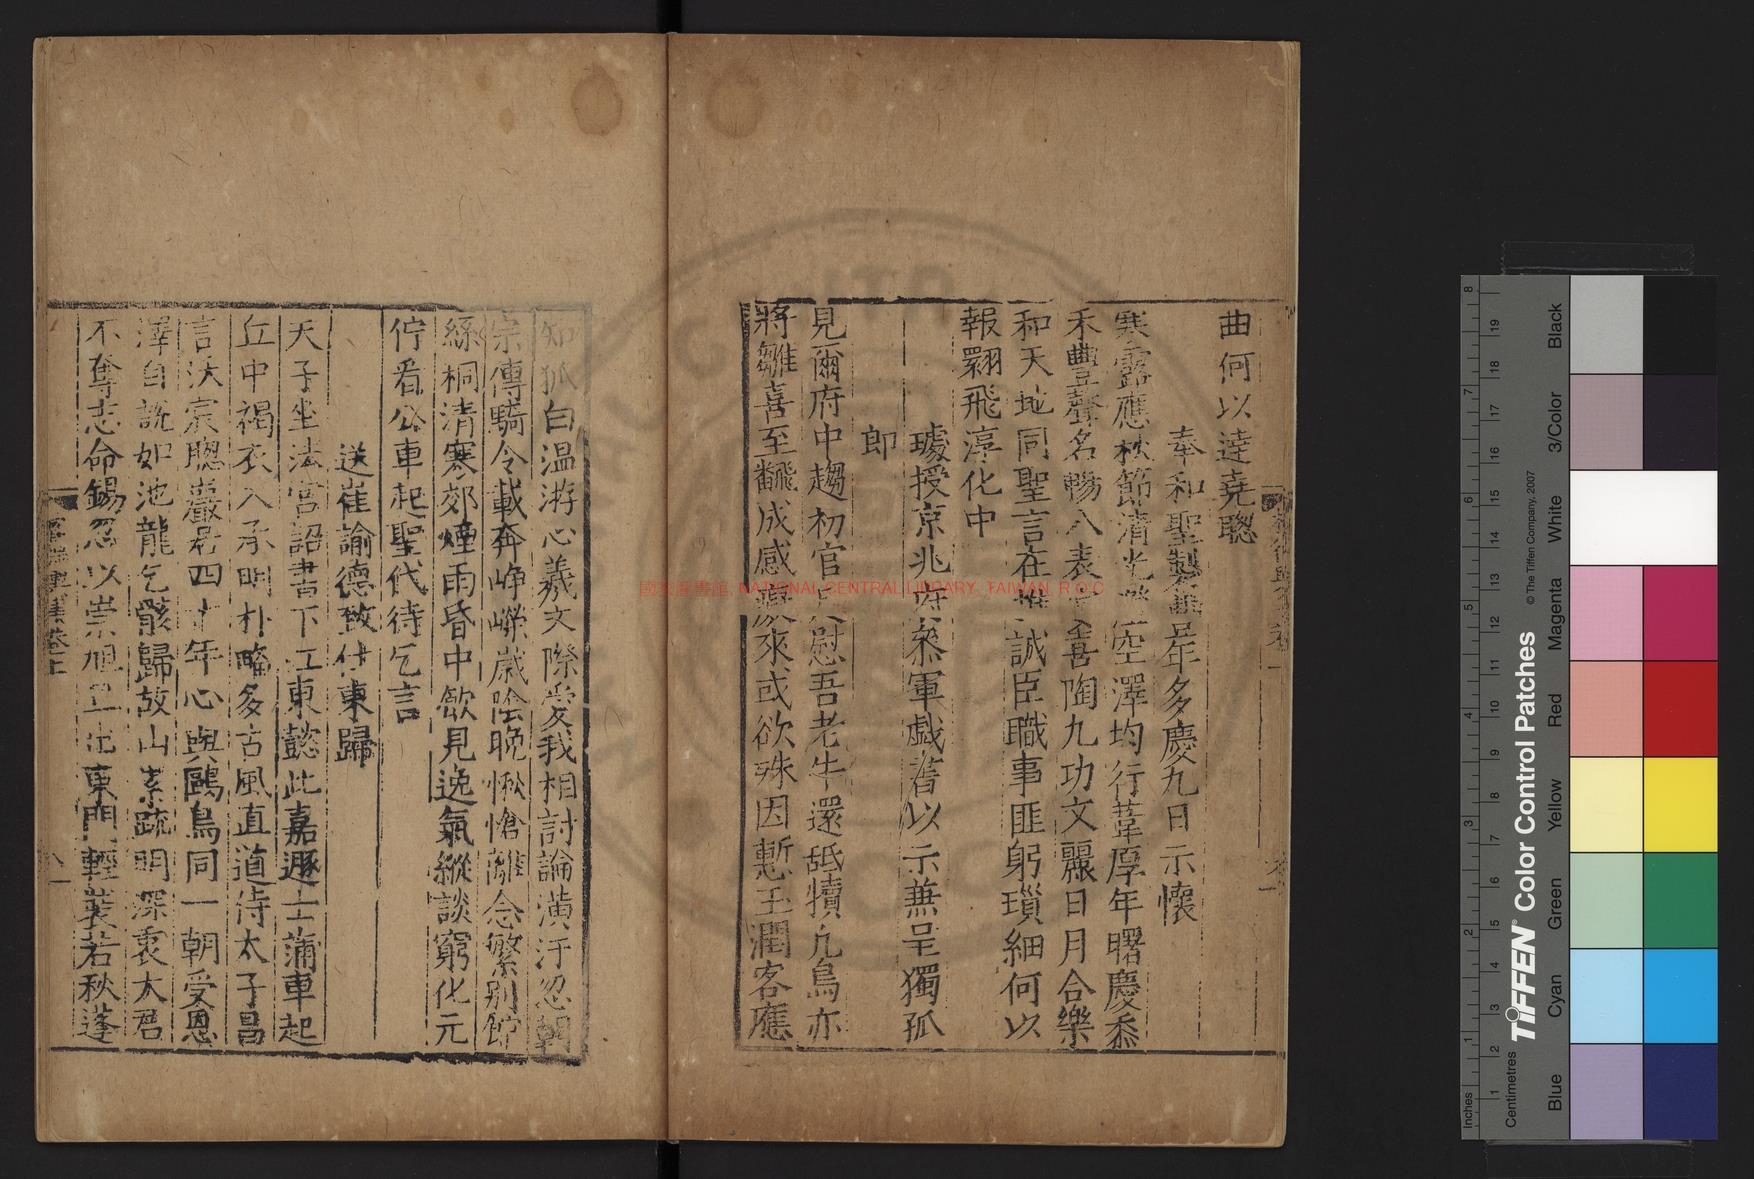 曲何以達堯聰
奉和聖製重陽多慶九日示懷
寒露應秋節清光澄空澤均行葦厚年曙慶黍
禾豐聲名暢八表 善陶九功文麗日月合樂
和天地同聖言在 誠臣職事匪躬瑣細何以
報翾飛淳化中
璩授京兆府叅軍戲書以示兼呈獨孤
郎
見爾府中趨初官足慰吾老牛還舐犢凡鳥亦
將雛喜至翻成感癡來或欲殊因慙玉潤客應
知狐白温游心羲文際愛我相討論潢汙忽朝
宗傳騎令載奔崢嶸歲陰晚愀愴離念繁别館
絲桐清寒郊煙雨昏中飲見逸氣縱談窮化元
佇看公車起聖代待乞言
送崔諭德致仕東歸
天子坐法宮詔書下江東懿此嘉遯士蒲車起
丘中褐衣入承明朴略多古風直道侍太子昌
言沃宸聰巖居四十年心與鷗鳥同一朝受恩
澤自說如池龍乞骸歸故山素疏明深衷大君
不奪志命錫忽以崇旭旦出東門輕裝若秋蓬
國家圖書館, NATIONAL CENTRAL LIBRARY, TAIWAN, R.O.C
Inches
Centimetres
TIFFEN Color Control Patches
© The Tiffen Company, 2007
Blue
Cyan
Green
Yellow
Red
Magenta
White
3/Color
Black